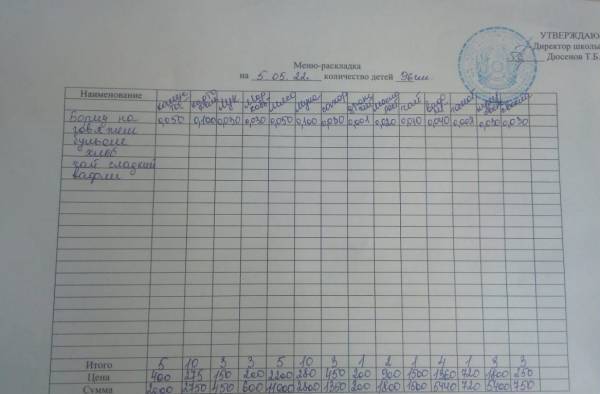 УТВЕРЖДАЮ
Директор школы
Дюсенов Т.Б.
Меню-раскладка
на 5.05.22. количество детей 96
Наименование капуста карто лук мор мясо мука сахар томат чай вафли
Борщ на 0,050 0,100 0,030 0,030 0,050 0,100 0,030 0,001 0,020 0,040 0,030 0,030
говяжем
бульоне
хлеб
чай сладкий
вафли
Итого 5 10 3 3 5 10 3 1 2 1 4 1 3 3
Цена 400 275 150 200 2200 280 450 200 900 1500 1360 720 1800 250
Сумма 2000 2750 450 600 11000 2800 1350 200 1800 1500 5440 720 5400 750